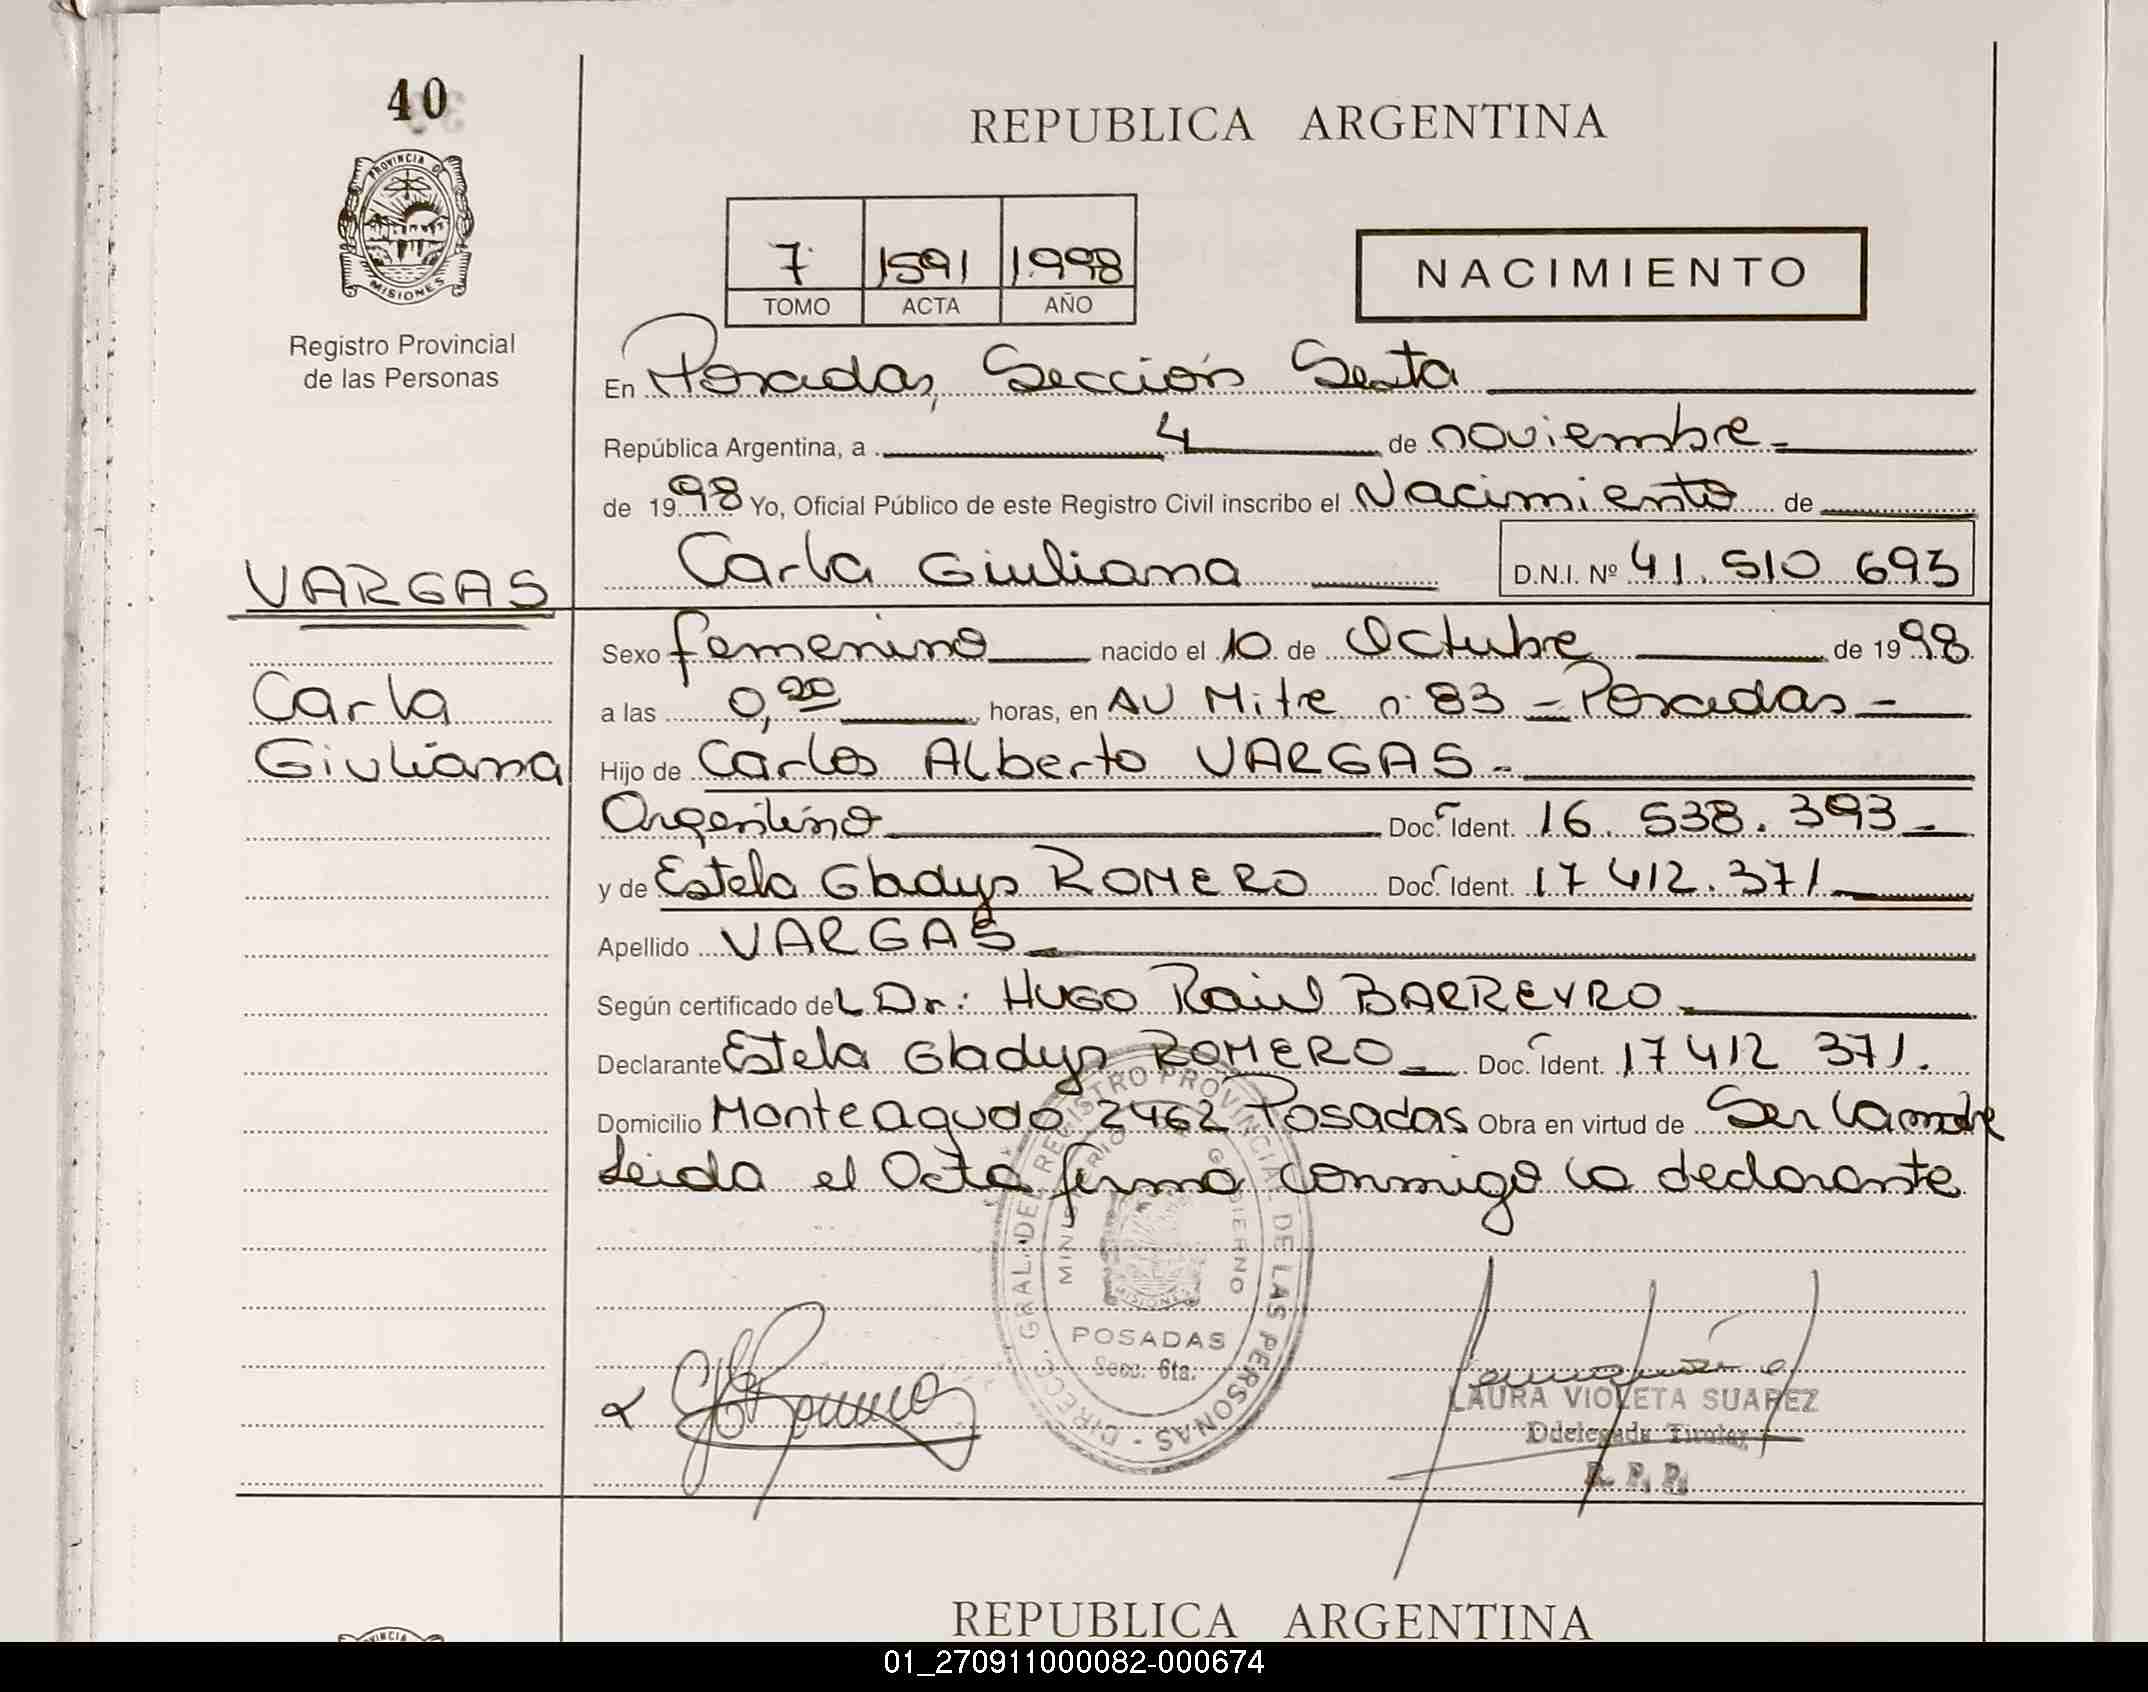 40
REPUBLICA ARGENTINA
PROVINCIA DE
MISIONES
Registro Provincial
de las Personas
7 1591 1.998
TOMO ACTA AÑO
NACIMIENTO
En Posadas, Sección Sexta
República Argentina, a 4 de noviembre
de 1998 Yo, Oficial Público de este Registro Civil inscribo el Nacimiento de
Carla Giuliana D.N.I. Nº 41.510 693
VARGAS
Carla
Giuliana
Sexo femenino nacido el 10 de Octubre de 1998
a las 0,20 horas, en AU Mitre nº 83 - Posadas -
Hijo de Carlos Alberto VARGAS -
Argentino Doc. Ident. 16.538.393 -
y de Estela Gladys ROMERO Doc. Ident. 17 412.371
Apellido VARGAS
Según certificado del Dr: HUGO Raúl BARREYRO
Declarante Estela Gladys ROMERO Doc. Ident. 17 412 371.
Domicilio Monteagudo 2462 Posadas Obra en virtud de Ser la madre
Leida el Acta firma conmigo la declarante
DIRECC. GRAL. DEL REGISTRO PROVINCIAL DE LAS PERSONAS -
MINISTERIO GOBIERNO
MISIONES
POSADAS
Secc. 6ta.
LAURA VIOLETA SUAREZ
Ddelegada Titular
R. P. P.
REPUBLICA ARGENTINA
01_270911000082-000674